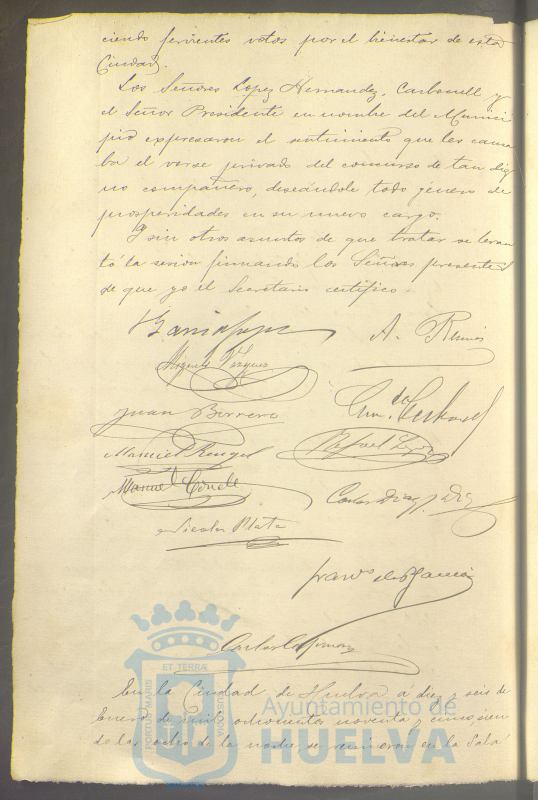 ciendo fervientes votos por el bienestar de esta
Ciudad.
Los Señores Lopez Hernandez, Carbonell y
el Señor Presidente en nombre del Munici
pio expresaron el sentimiento que les causa
ba el verse privado del concurso de tan dig
no compañero, deseándole todo género de
prosperidades en su nuevo cargo.
Y sin otros asuntos de que tratar se levan
tó la sesión firmando los Señores presentes
de que yo el Secretario certifico.
A.
Vazquez
Juan Borrero
Carbonell
Manuel Rengel
Rafael Lopez
Manuel Conde
Carlos Diaz
Nicolas Plata
Garcia
Carlos
En la Ciudad de Huelva a diez y seis de
Enero de mil ochocientos noventa y cinco, sien
do las ocho de la noche se reunieron en la Sala
ET TERRÆ
PORTUS MARIS
CUSTODIA
Ayuntamiento de
HUELVA